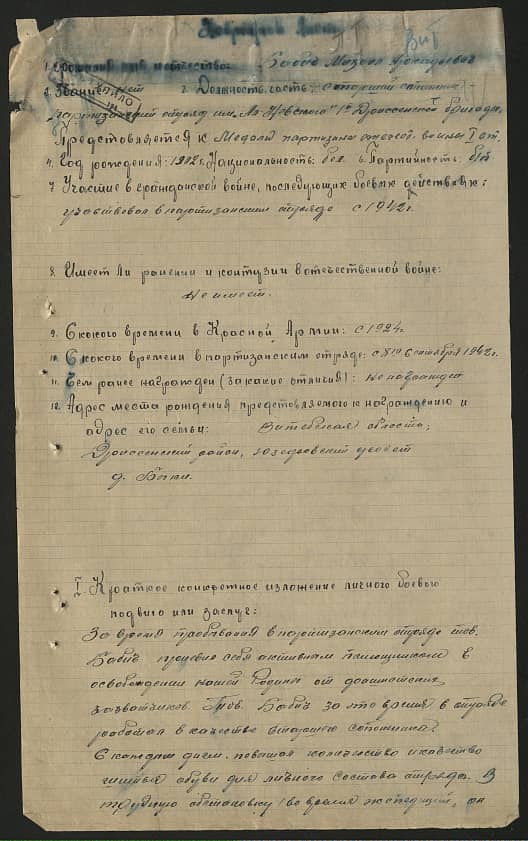 Наградной Лист
Вит
1. Фамилия имя и отчество: Бабич Михаил Аркадьевич
2. Звание: нет 3. Должность, часть: старший сапожник
партизанский отряд им. "Ал. Невского" 1й Дриссенской бригады
Представляется к Медали партизану отечеств. войны I ст.
4. Год рождения: 1902 г. Национальность: бел. 6. Партийность: б/п
7. Участие в гражданской войне, последующих боевых действиях:
участвовал в партизанским отряде с 1942 г.
8. Имеет ли ранении и контузии в отечественной войне:
Не имеет.
9. С какого времени в Красной Армии: с 1924 г.
10. С какого времени в партизанским отряде: с октября 1942 г.
11. Чем ранее награжден (за какие отличия): не награжден
12. Адрес места рождения представляемого к награждению и
адрес его семьи: Витебская область,
Дриссенский район, совет
д.
I. Краткое конкретное изложение личного боевого
подвига или заслуг:
За время пребывания в партизанским отряде тов.
Бабич проявил себя активным помощником в
освобождении нашей Родины от фашистских
захватчиков. Тов. Бабич за это время в отряде
работал в качестве старшего сапожника.
С каждым днем повышал количество и качество
шитья обуви для личного состава отряда. В
трудную обстановку (во время экспедиций, он